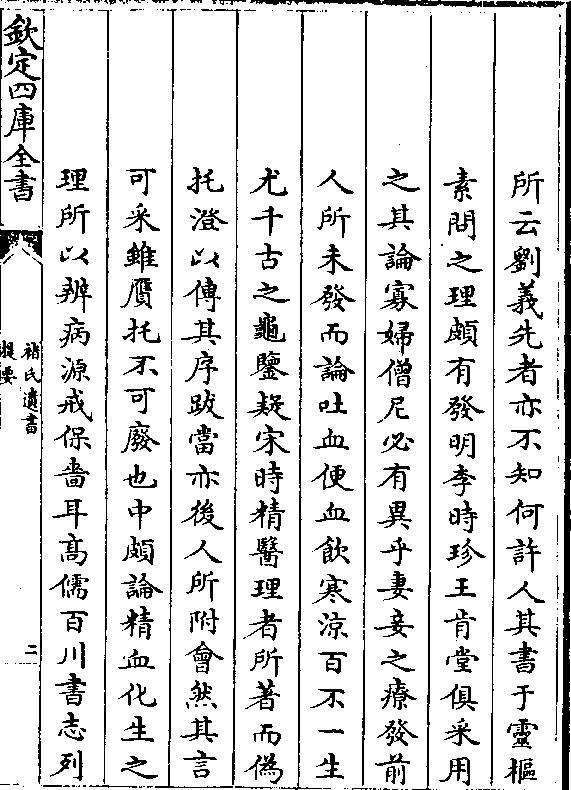 所云劉義先者亦不知何許人其書于靈樞
素問之理頗有發明李時珍王肯堂俱采用
之其論寡婦僧尼必有異乎妻妾之療發前
人所未發而論吐血便血飲寒涼百不一生
尤千古之龜鑒疑宋時精醫理者所著而偽
托澄以傳其序跋當亦後人所附會然其言
可采雖贋托不可廢也中頗論精血化生之
理所以辨病源戒保嗇耳高儒百川書志列
欽定四庫全書
褚氏遺書
提要
二